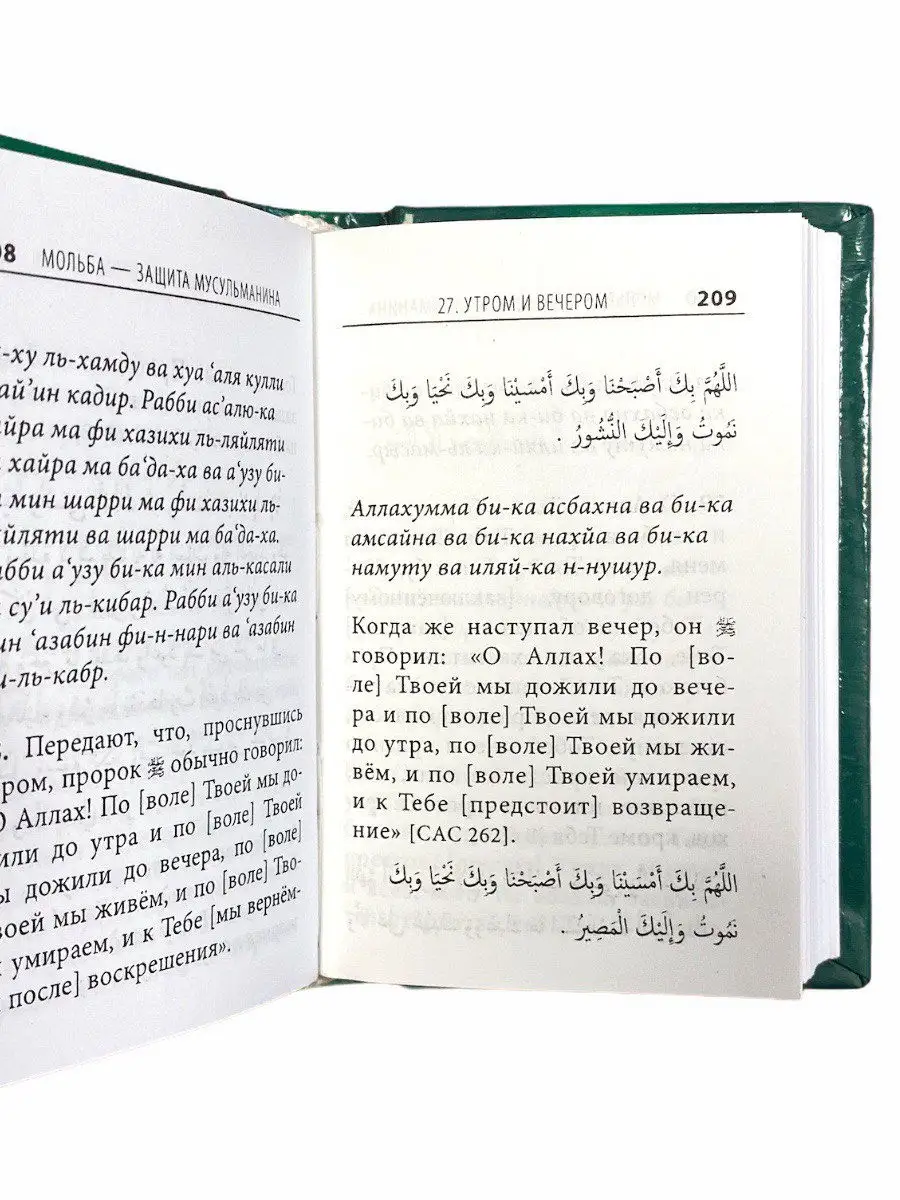 08 МОЛЬБА — ЗАЩИТА МУСУЛЬМАНИНА
-ху ль-хамду ва хуа ‘аля кулли
ай’ин кадир. Рабби ас’алю-ка
айра ма фи хазихи ль-ляйляти
хайра ма ба‘да-ха ва а‘узу би-
мин шарри ма фи хазихи ль-
йляти ва шарри ма ба‘да-ха.
абби а‘узу би-ка мин аль-касали
су’и ль-кибар. Рабби а‘узу би-ка
ин ‘азабин фи-н-нари ва ‘азабин
и-ль-кабр.
Передают, что, проснувшись
ром, пророк ﷺ обычно говорил:
О Аллах! По [воле] Твоей мы до-
или до утра и по [воле] Твоей
ы дожили до вечера, по [воле]
воей мы живём, и по [воле] Тво-
умираем, и к Тебе [мы вернём-
после] воскрешения».
27. УТРОМ И ВЕЧЕРОМ 209
اللَّهُمَّ بِكَ أَصْبَحْنَا وَبِكَ أَمْسَيْنَا وَبِكَ نَحْيَا وَبِكَ
نَمُوتُ وَإِلَيْكَ النُّشُورُ .
Аллахумма би-ка асбахна ва би-ка
амсайна ва би-ка нахйа ва би-ка
намуту ва иляй-ка н-нушур.
Когда же наступал вечер, он ﷺ
говорил: «О Аллах! По [во-
ле] Твоей мы дожили до вече-
ра и по [воле] Твоей мы дожили
до утра, по [воле] Твоей мы жи-
вём, и по [воле] Твоей умираем,
и к Тебе [предстоит] возвраще-
ние» [САС 262].
اللَّهُمَّ بِكَ أَمْسَيْنَا وَبِكَ أَصْبَحْنَا وَبِكَ نَحْيَا وَبِكَ
نَمُوتُ وَإِلَيْكَ الْمَصِيرُ .